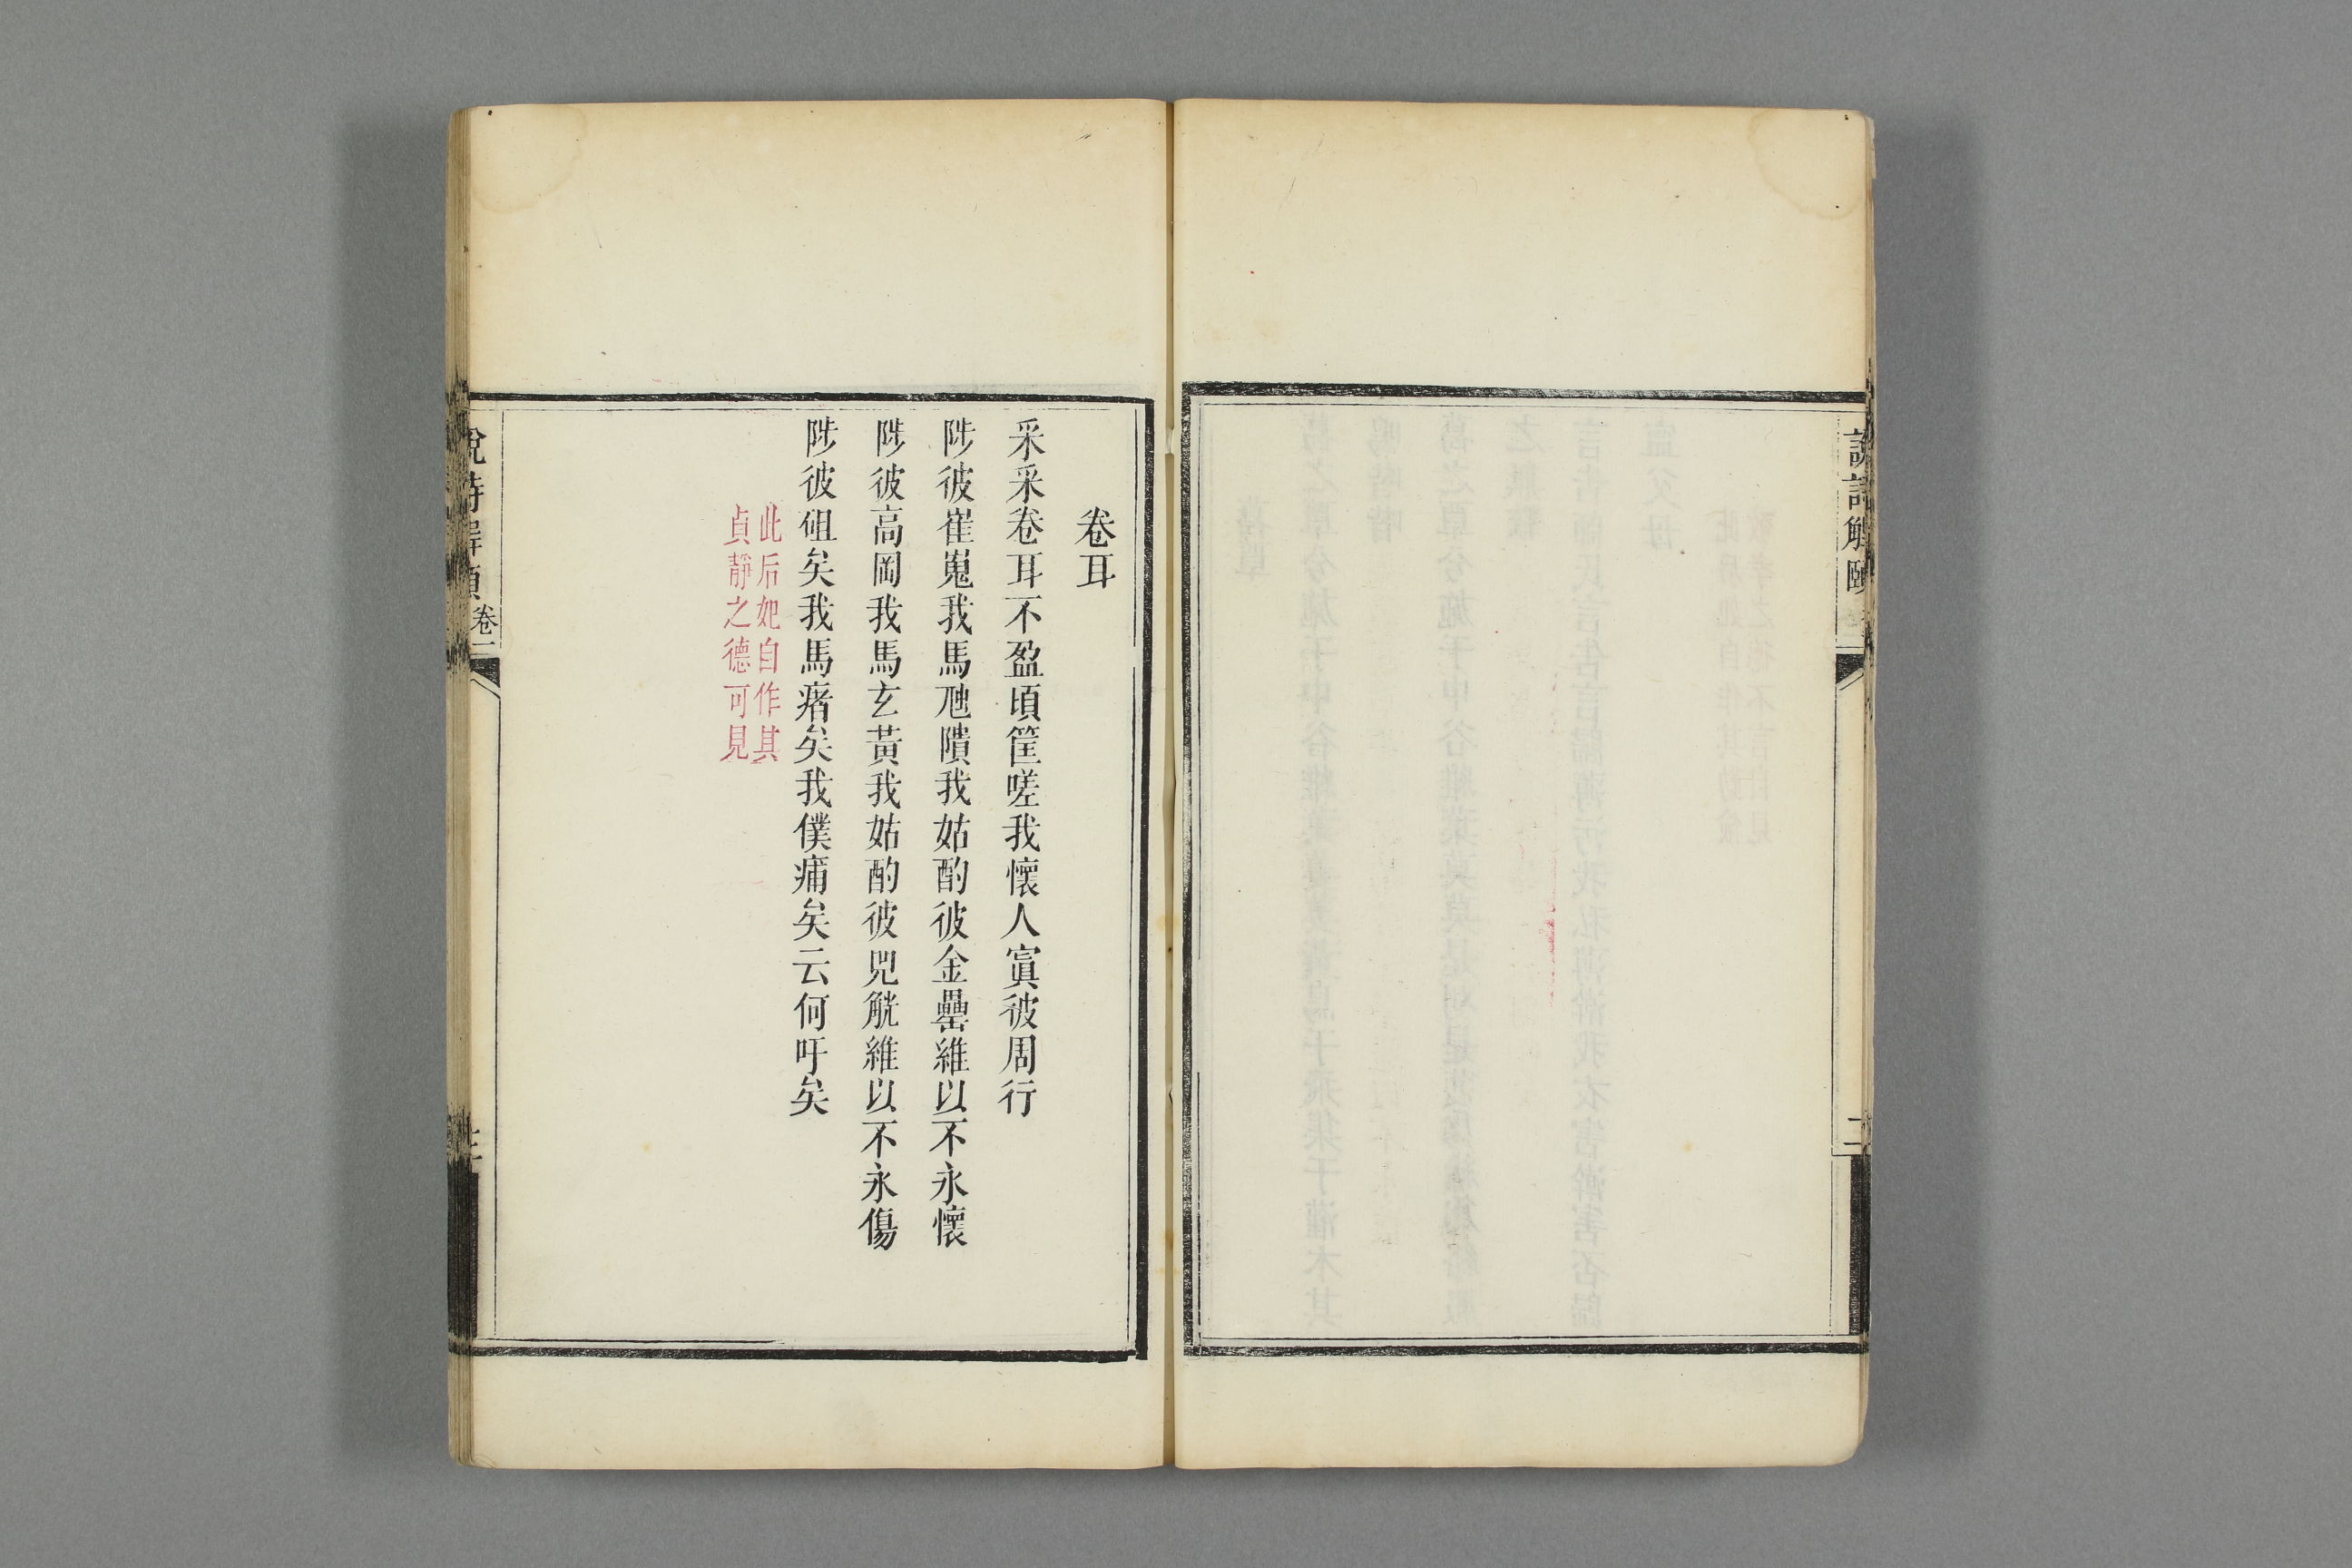 說詩解頤
二
卷耳
采采卷耳不盈頃筐嗟我懷人寘彼周行
陟彼崔嵬我馬虺隤我姑酌彼金罍維以不永懷
陟彼高岡我馬玄黃我姑酌彼兕觥維以不永傷
陟彼砠矣我馬瘏矣我僕痡矣云何吁矣
此后妃自作其
貞靜之德可見
說詩解頤 卷一